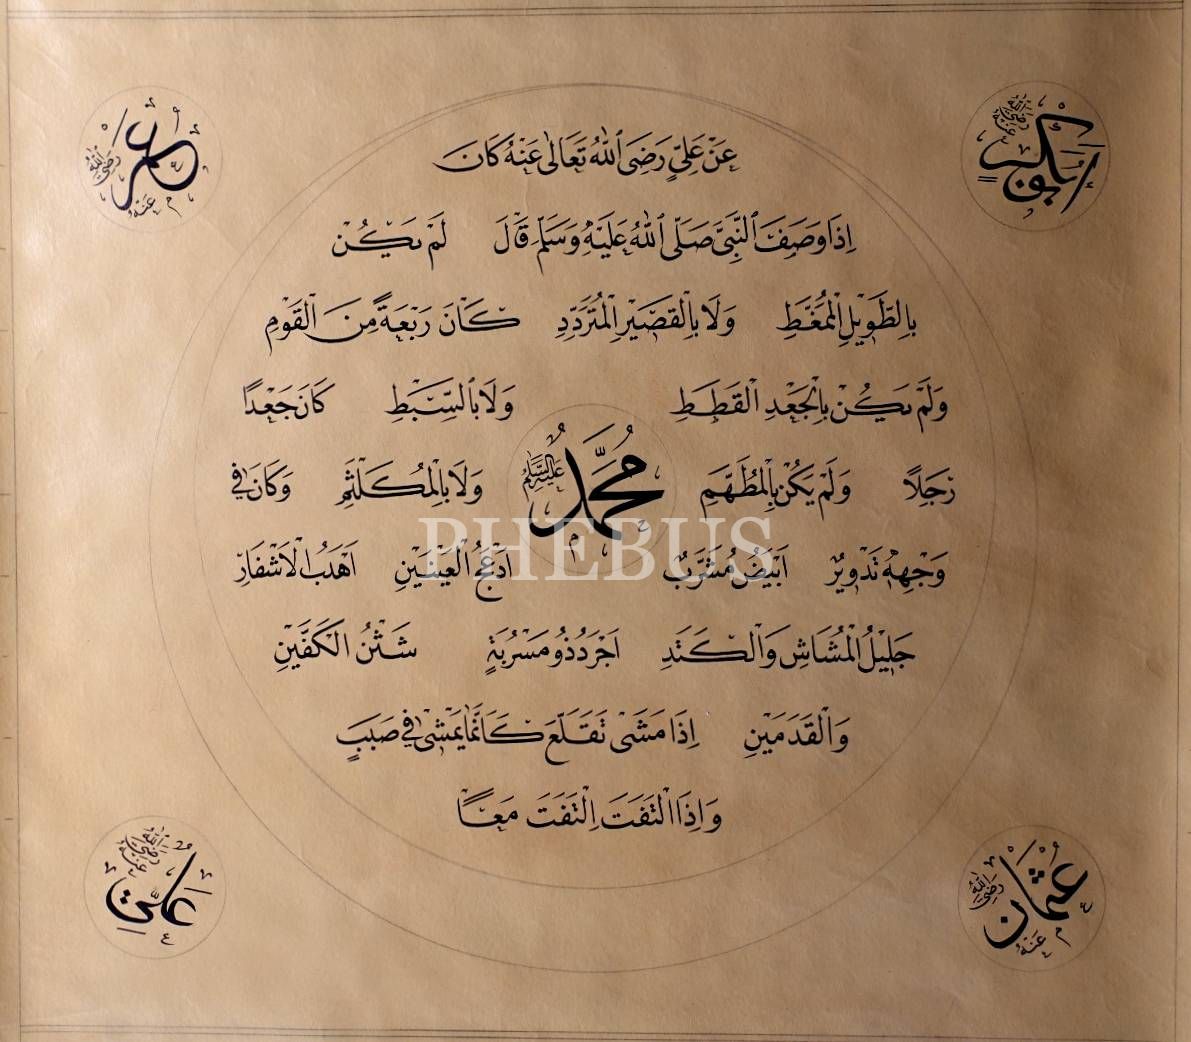 أبو بكر رضي الله عنه
عمر رضي الله عنه
عَنْ عَلِيٍّ رَضَى اللهُ تَعَالىٰ عَنْهُ كَانَ
اِذَا وَصَفَ النَّبِىَّ صَلَّى اللهُ عَلَيْهِ وَسَلَّمَ قَالَ لَمْ يَكُنْ
بِالطَّوِيْلِ الْمُمَّغَطِ وَلَا بِالْقَصِيْرِ الْمُتَرَدِّدِ كَانَ رَبْعَةً مِنَ الْقَوْمِ
وَلَمْ يَكُنْ بِالْجَعْدِ الْقَطَطِ وَلَا بِالسَّبْطِ كَانَ جَعْدًا
رَجِلًا وَلَمْ يَكُنْ بِالْمُطَهَّمِ وَلَا بِالْمُكَلْثَمِ وَكَانَ فِى
محمد عليه السلام
وَجْهِهٖ تَدْوِيْرٌ اَبْيَضُ مُشْرَبٌ اَدْعَجُ الْعَيْنَيْنِ اَهْدَبُ الْاَشْفَارِ
PHEBUS
جَلِيْلُ الْمُشَاشِ وَالْكَتَدِ اَجْرَدُ ذُو مَسْرُبَةٍ شَثْنُ الْكَفَّيْنِ
وَالْقَدَمَيْنِ اِذَا مَشَى تَقَلَّعَ كَاَنَّمَا يَمْشِى فِى صَبَبٍ
وَاِذَا الْتَفَتَ اِلْتَفَتَ مَعًا
عثمان رضي الله عنه
علي رضي الله عنه